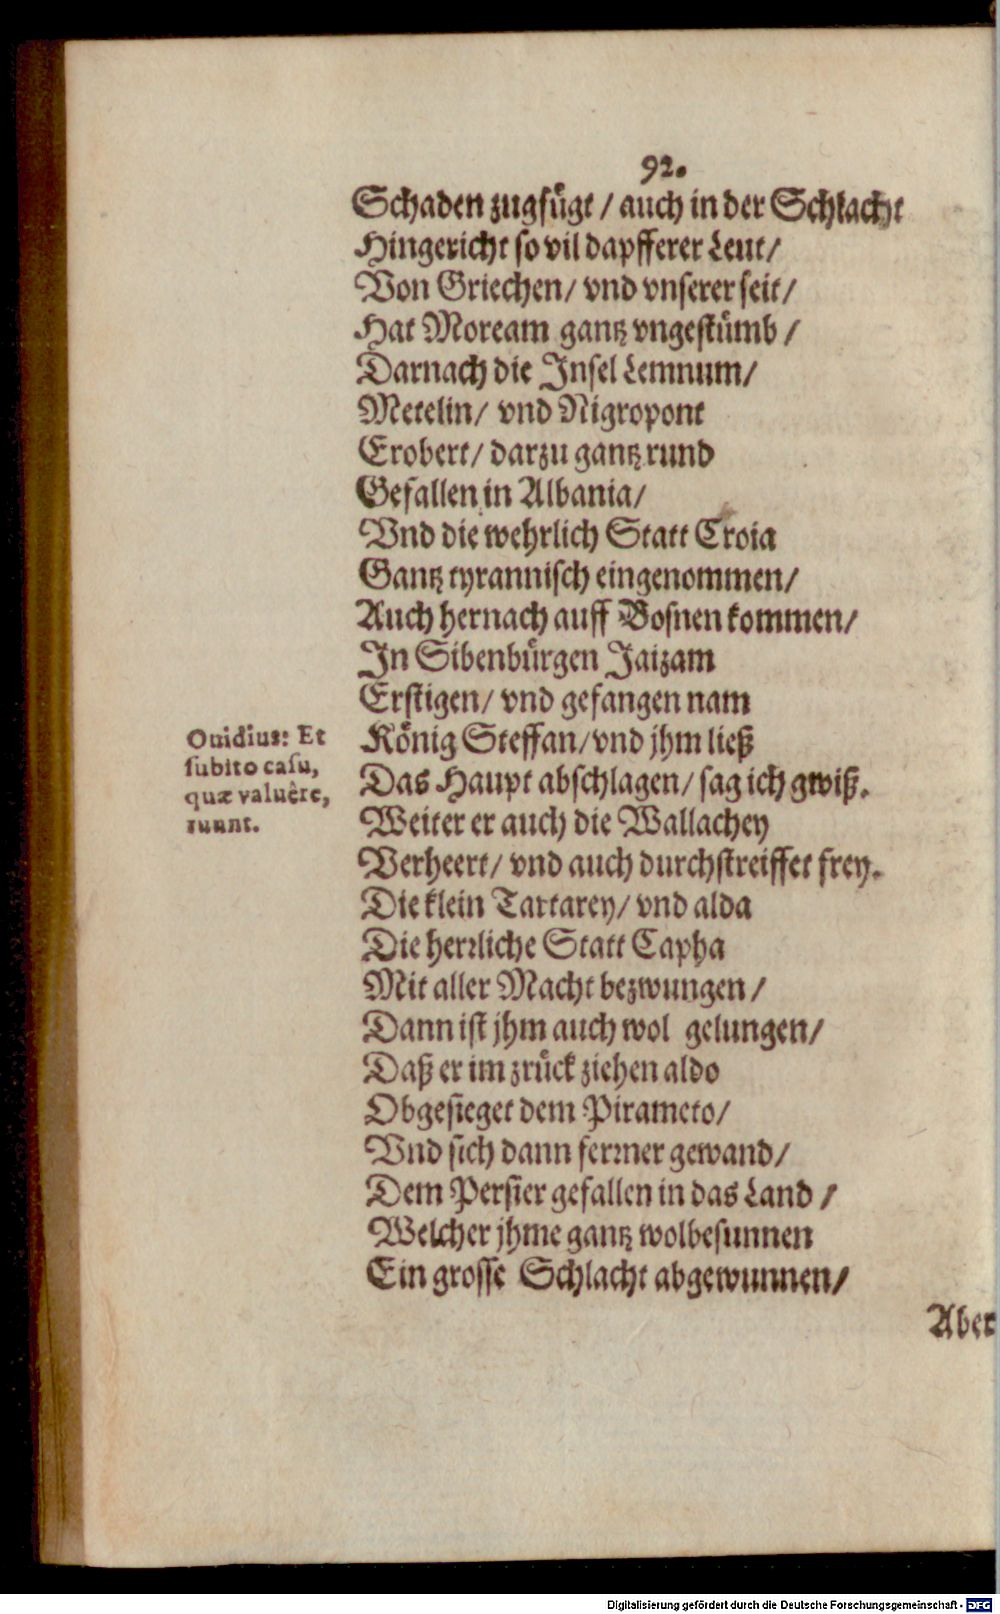 92.
Schaden zugfügt / auch in der Schlacht
Hingericht so vil dapfferer Leut /
Von Griechen / vnd vnserer seit /
Hat Moream gantz vngestümb /
Darnach die Insel Lemnum /
Metelin / vnd Nigropont
Erobert / darzu gantz rund
Gefallen in Albania /
Vnd die wehrlich Statt Croia
Gantz tyrannisch eingenommen /
Auch hernach auff Bosnen kommen /
In Sibenbürgen Jaizam
Erstigen / vnd gefangen nam
König Steffan / vnd jhm ließ
Das Haupt abschlagen / sag ich gwiß.
Weiter er auch die Wallachey
Verheert / vnd auch durchstreiffet frey.
Die klein Tartarey / vnd alda
Die herrliche Statt Capha
Mit aller Macht bezwungen /
Dann ist jhm auch wol gelungen /
Daß er im zrück ziehen aldo
Obgesieget dem Pirameto /
Vnd sich dann ferrner gewand /
Dem Persier gefallen in das Land /
Welcher jhme gantz wolbesunnen
Ein grosse Schlacht abgewunnen /
Aber
Ouidius: Et
subito casu,
quæ valuêre,
ruunt.
Digitalisierung gefördert durch die Deutsche Forschungsgemeinschaft - DFG